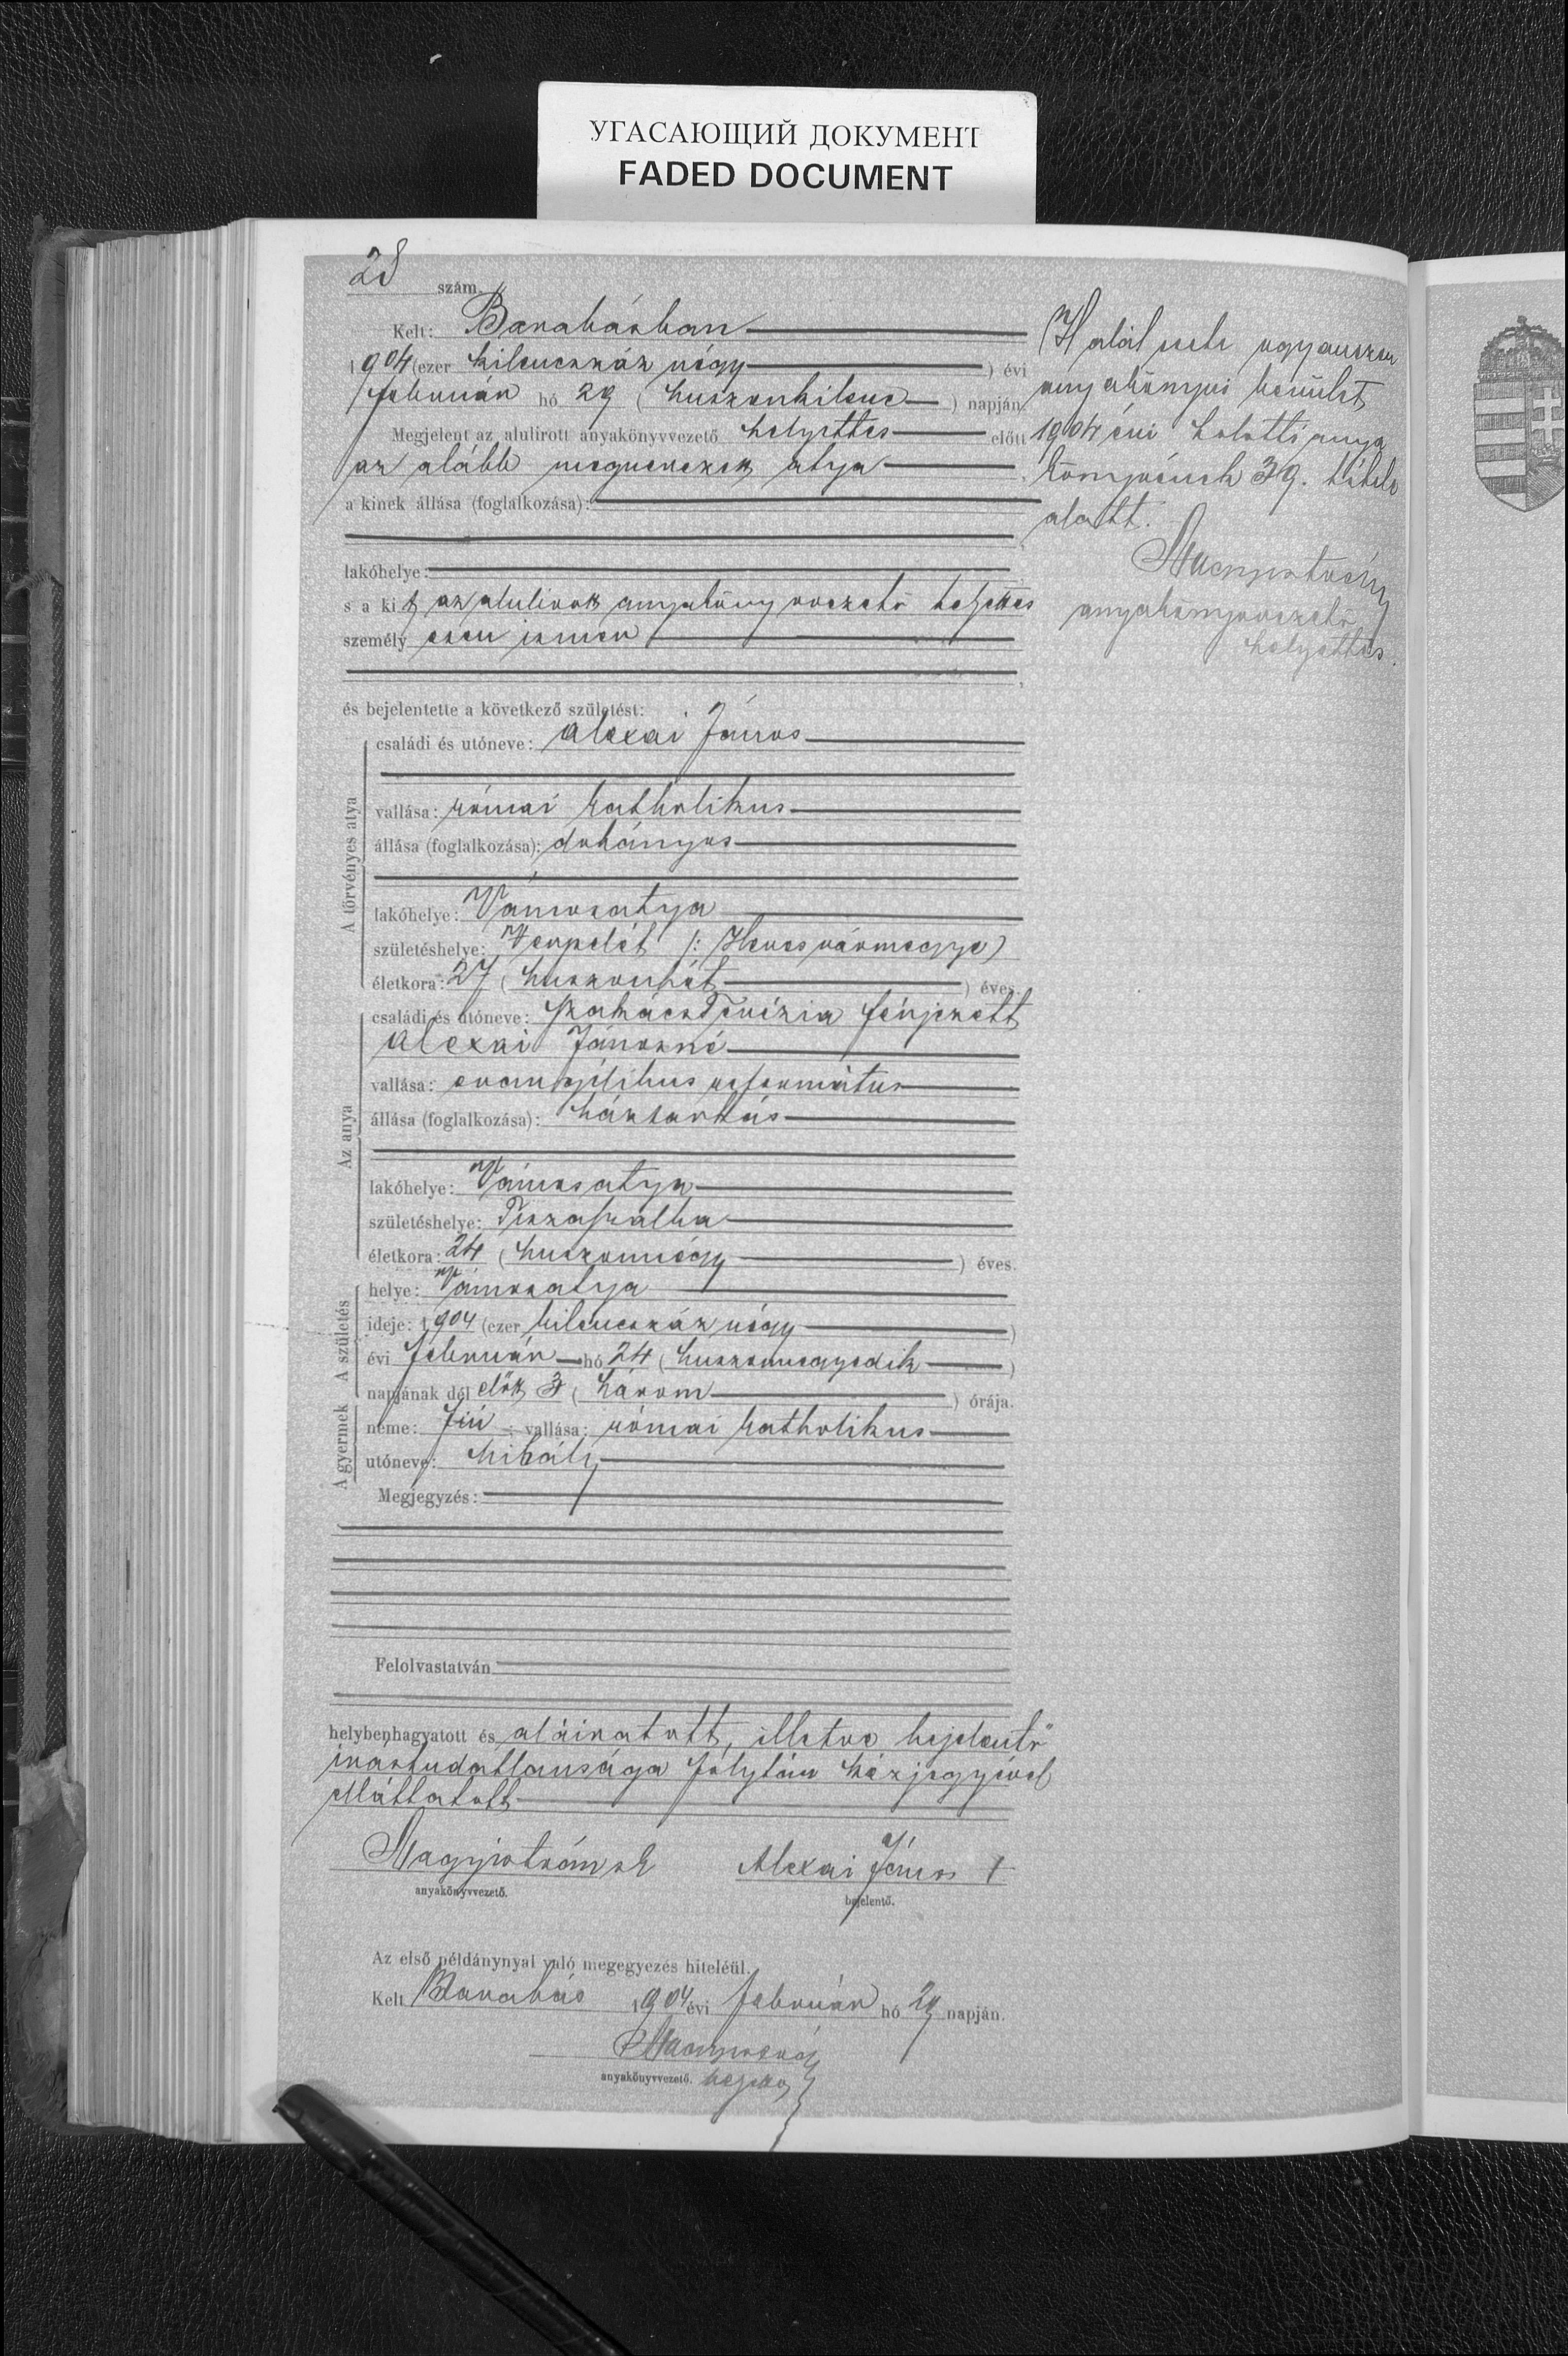 УГАСАЮЩИЙ ДОКУМЕНТ
FADED DOCUMENT
28 szám.
Kelt: Barabásban
1904 (ezer kilenczszáz négy) évi
február hó 29 (huszonkilenc) napján
Megjelent az alulirott anyakönyvvezető helyettes előtt
az alább megnevezett atya
a kinek állása (foglalkozása):
lakóhelye:
s a kit az alulirott anyakönyvvezető helyettes
személyesen ismer
és bejelentette a következő születést:
A törvényes atya
családi és utóneve: Alexai János
vallása: római katholikus
állása (foglalkozása): dohányos
lakóhelye: Vámosatya
születéshelye: Verpelét (: Heves vármegye)
életkora: 27 (huszonhét) éves.
Az anya
családi és utóneve: Szakács Terézia férjezett
Alexai Jánosné
vallása: evangélikus református
állása (foglalkozása): háztartás
lakóhelye: Vámosatya
születéshelye: Tiszaszalka
életkora: 24 (huszonnégy) éves.
A születés
helye: Vámosatya
ideje: 1904 (ezer kilenczszáz négy)
évi február hó 24 (huszonnegyedik)
napjának dél előtt 3 (három) órája.
A gyermek
neme: fiú; vallása: római katholikus
utóneve: Mihály
Megjegyzés:
Felolvastatván
helybenhagyatott és aláiratott, illetve bejelentő
irástudatlansága folytán kézjegyével
elláttatott
anyakönyvvezető.
Alexai János †
bejelentő.
Az első példánynyal való megegyezés hiteléül.
Kelt Barabás 1904 évi február hó 29 napján.
anyakönyvvezető. helyettes
Halál esete ugyanezen
anyakönyvi kerület
1904 évi halotti anya
könyvének 39. tétele
alatt.
anyakönyvvezető
helyettes.